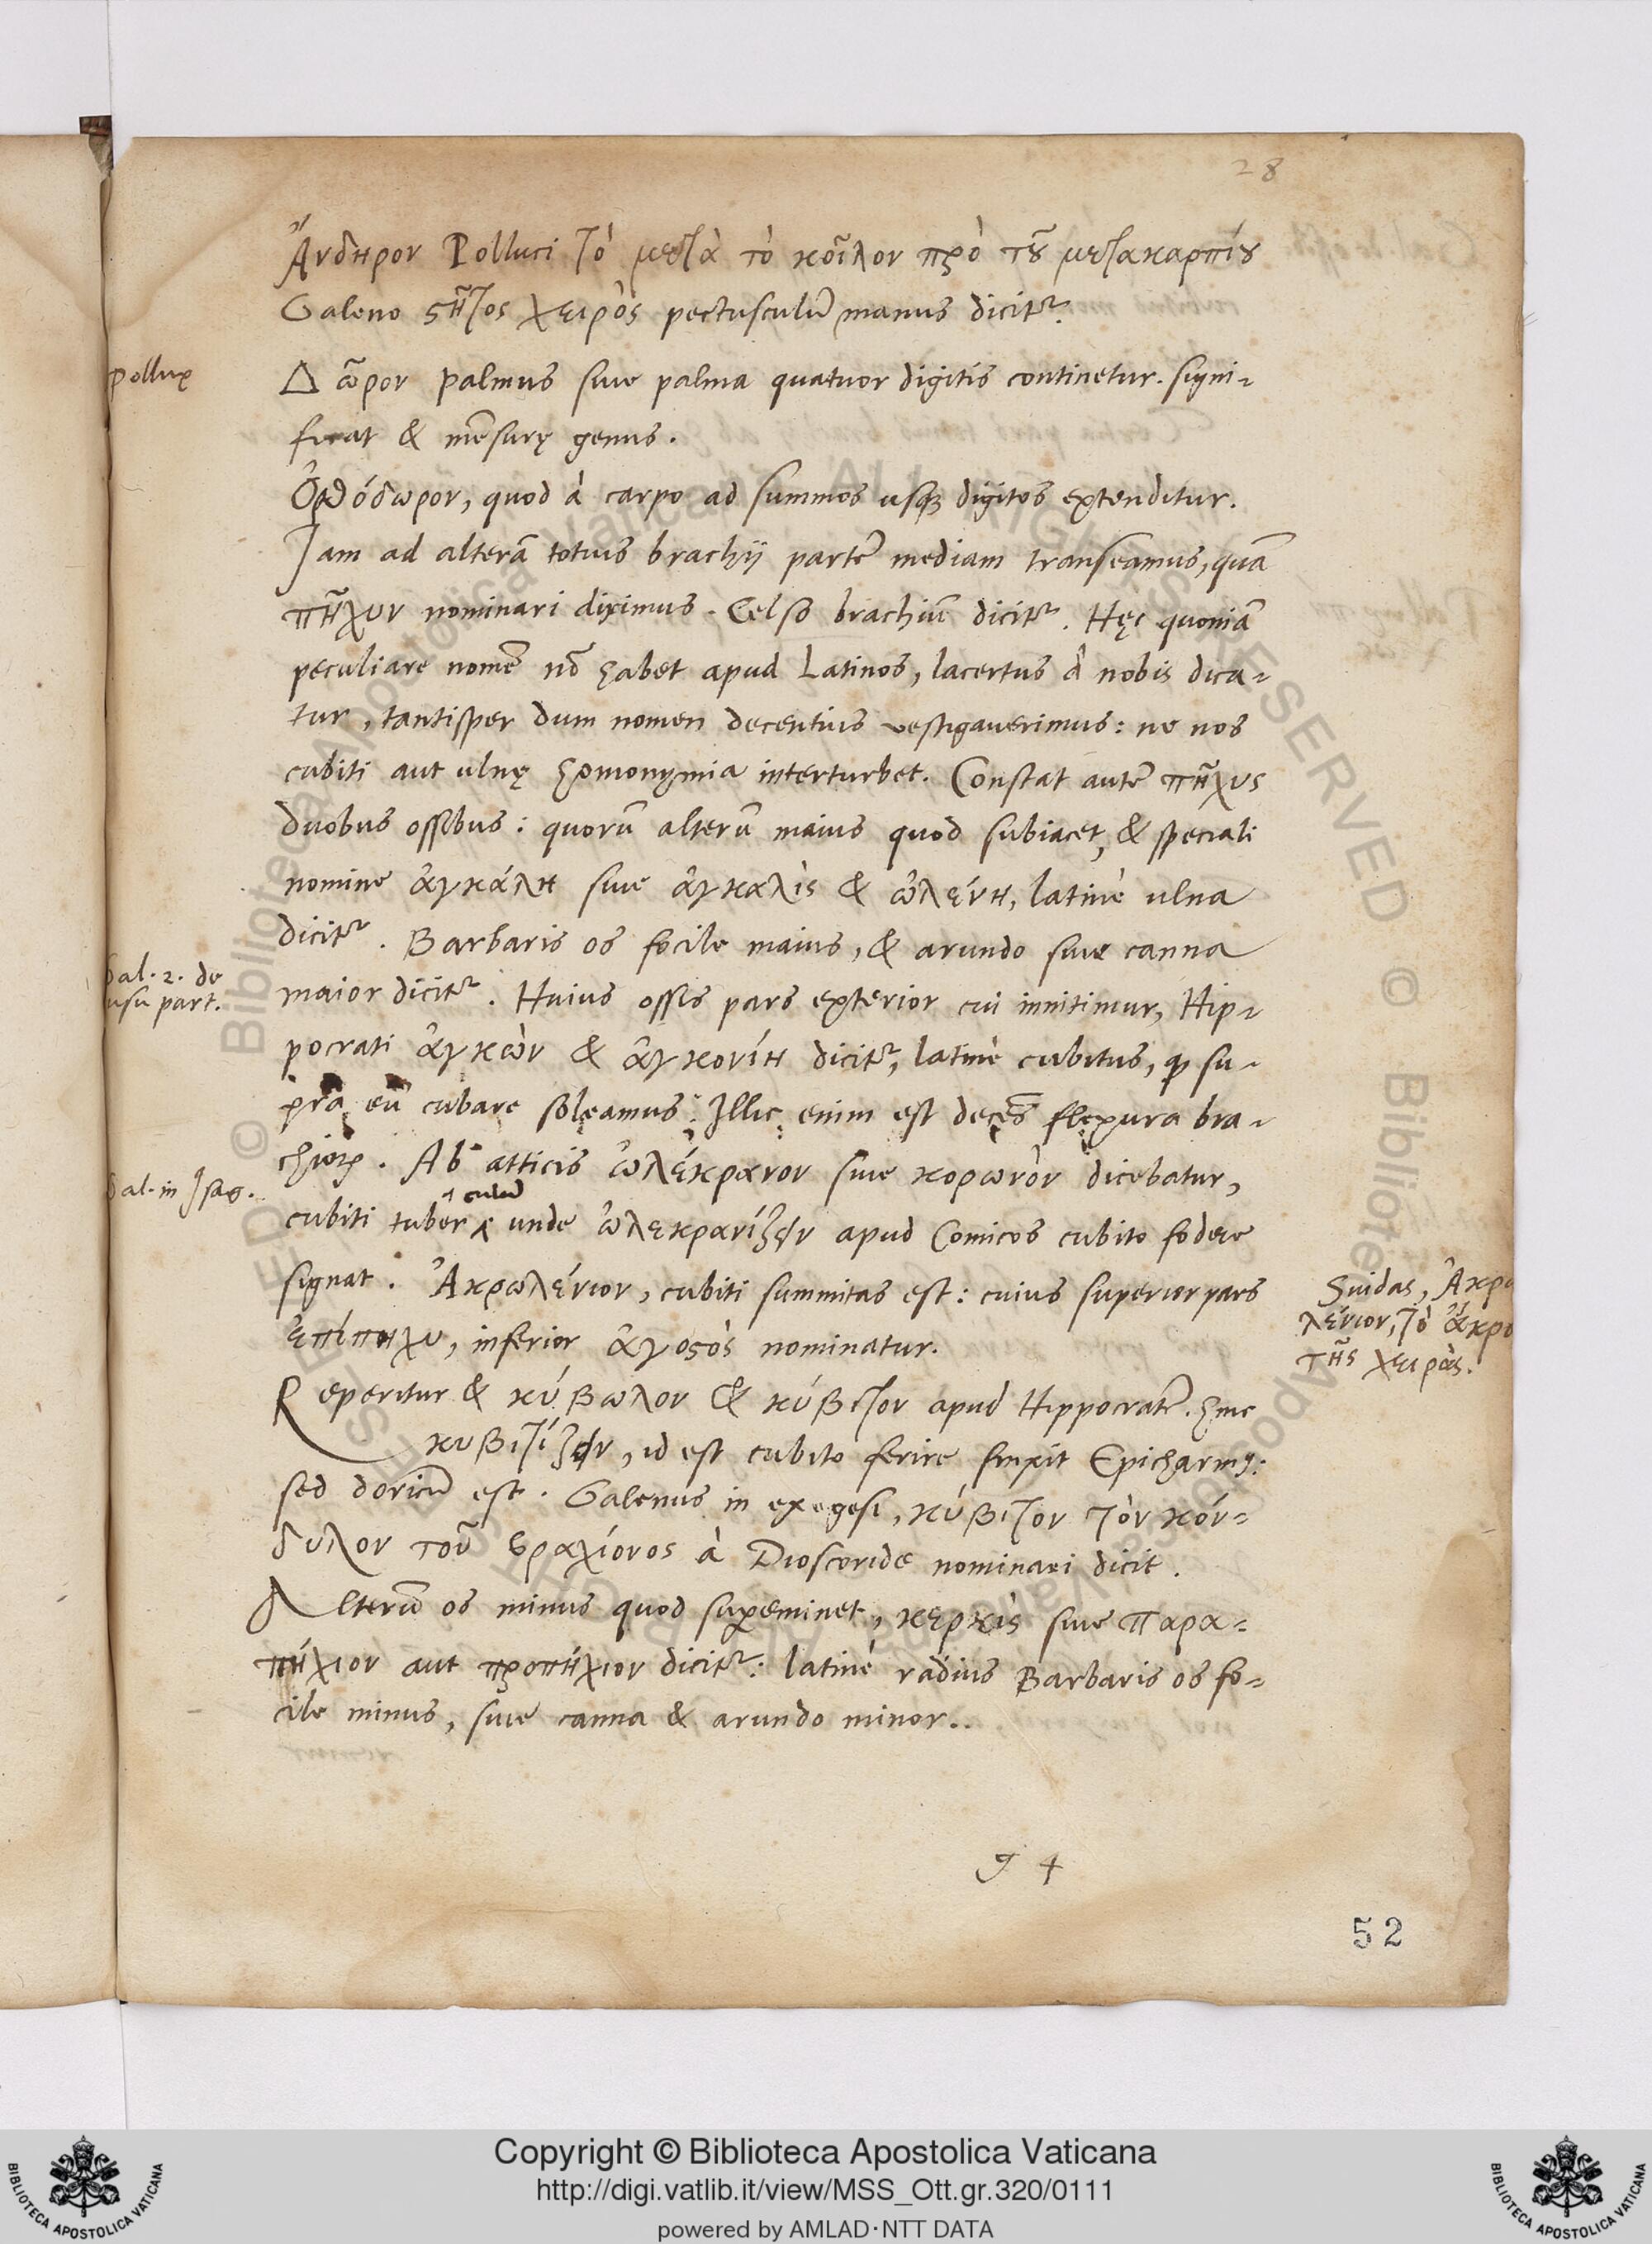 28
Ἄνδηρον Polluci τὸ μετὰ τὸ κοῖλον πρὸ τοῦ μετακαρπίου
Galeno στῆτος χειρὸς pectusculũ manus dicitr.
Pollux
Δῶρον palmus siue palma quatuor digitis continetur. signi-
ficat & mẽsurę genus.
Ὀρθόδωρον, quod à carpo ad summos usq digitos extenditur.
Iam ad alterã totius brachij partẽ mediam transeamus, quã
πῆχυν nominari diximus. Celso brachiũ dicitr. Hęc quoniã
peculiare nomẽ nõ habet apud Latinos, lacertus à nobis dica-
tur, tantisper dum nomen decentius vestigauerimus: ne nos
cubiti aut ulnę homonymia interturbet. Constat autẽ πῆχυς
duobus ossibus: quorũ alterũ maius quod subiacet, & speciali
nomine ἀγκάλη siue ἀγκαλὶς & ὠλένη, latinè ulna
dicitr. Barbaris os focile maius, & arundo siue canna
Gal. 2. de
usu part.
maior dicitr. Huius ossis pars exterior cui innitimur, Hip-
pocrati ἀγκὼν & ἀγκονίη dicitr, latinè cubitus, q su-
pra eũ cubare soleamus: Illic enim est decẽs flexura bra-
chiorũ. Ab atticis ὠλέκρανον siue κορωνὸν dicebatur,
Gal. in Isag.
culũ
cubiti tuber unde ὠλεκρανίζειν apud Comicos cubito fodere
signat. Ἀκρωλένιον, cubiti summitas est: cuius superior pars
ἐπίπηχυ, inferior ἀγοστὸς nominatur.
Suidas, Ἀκρω
λένιον, τὸ ἄκρο
τῆς χειρὸς.
Reperitur & κύβωλον & κύβιτον apud Hippocratẽ. hinc
κυβιτίζειν, id est cubito ferire finxit Epicharmꝰ:
sed doricũ est. Galenus in exegesi, κύβιτον τὸν κόν-
δυλον τοῦ βραχίονος à Dioscoride nominari dicit.
Alterũ os minus quod supeminet, κερκὶς siue παρα-
πήχιον aut προπήχιον dicitr: latinè radius Barbaris os fo-
cile minus, siue canna & arundo minor..
g 4
52
Copyright © Biblioteca Apostolica Vaticana
http://digi.vatlib.it/view/MSS_Ott.gr.320/0111
powered by AMLAD·NTT DATA
BIBLIOTECA APOSTOLICA VATICANA
BIBLIOTECA APOSTOLICA VATICANA